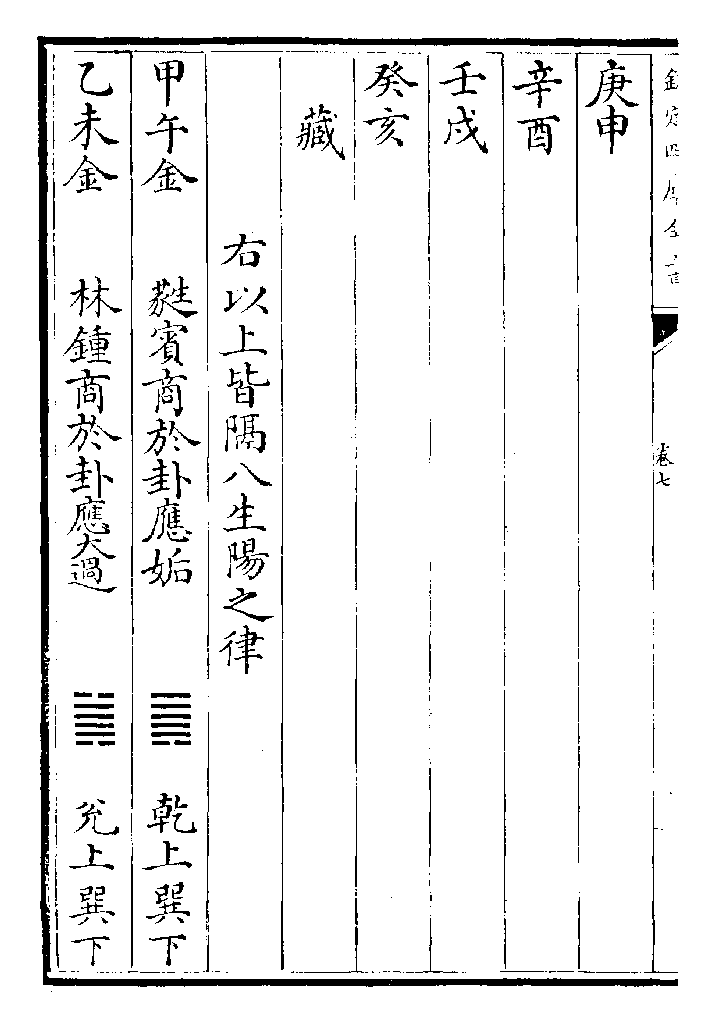 欽定四庫全書
卷七
庚申
辛酉
壬戌
癸亥
藏
右以上皆隔八生陽之律
甲午金 蕤賓商於卦應姤 ䷫ 乾上巽下
乙未金 林鍾商於卦應大過 ䷛ 兊上巽下